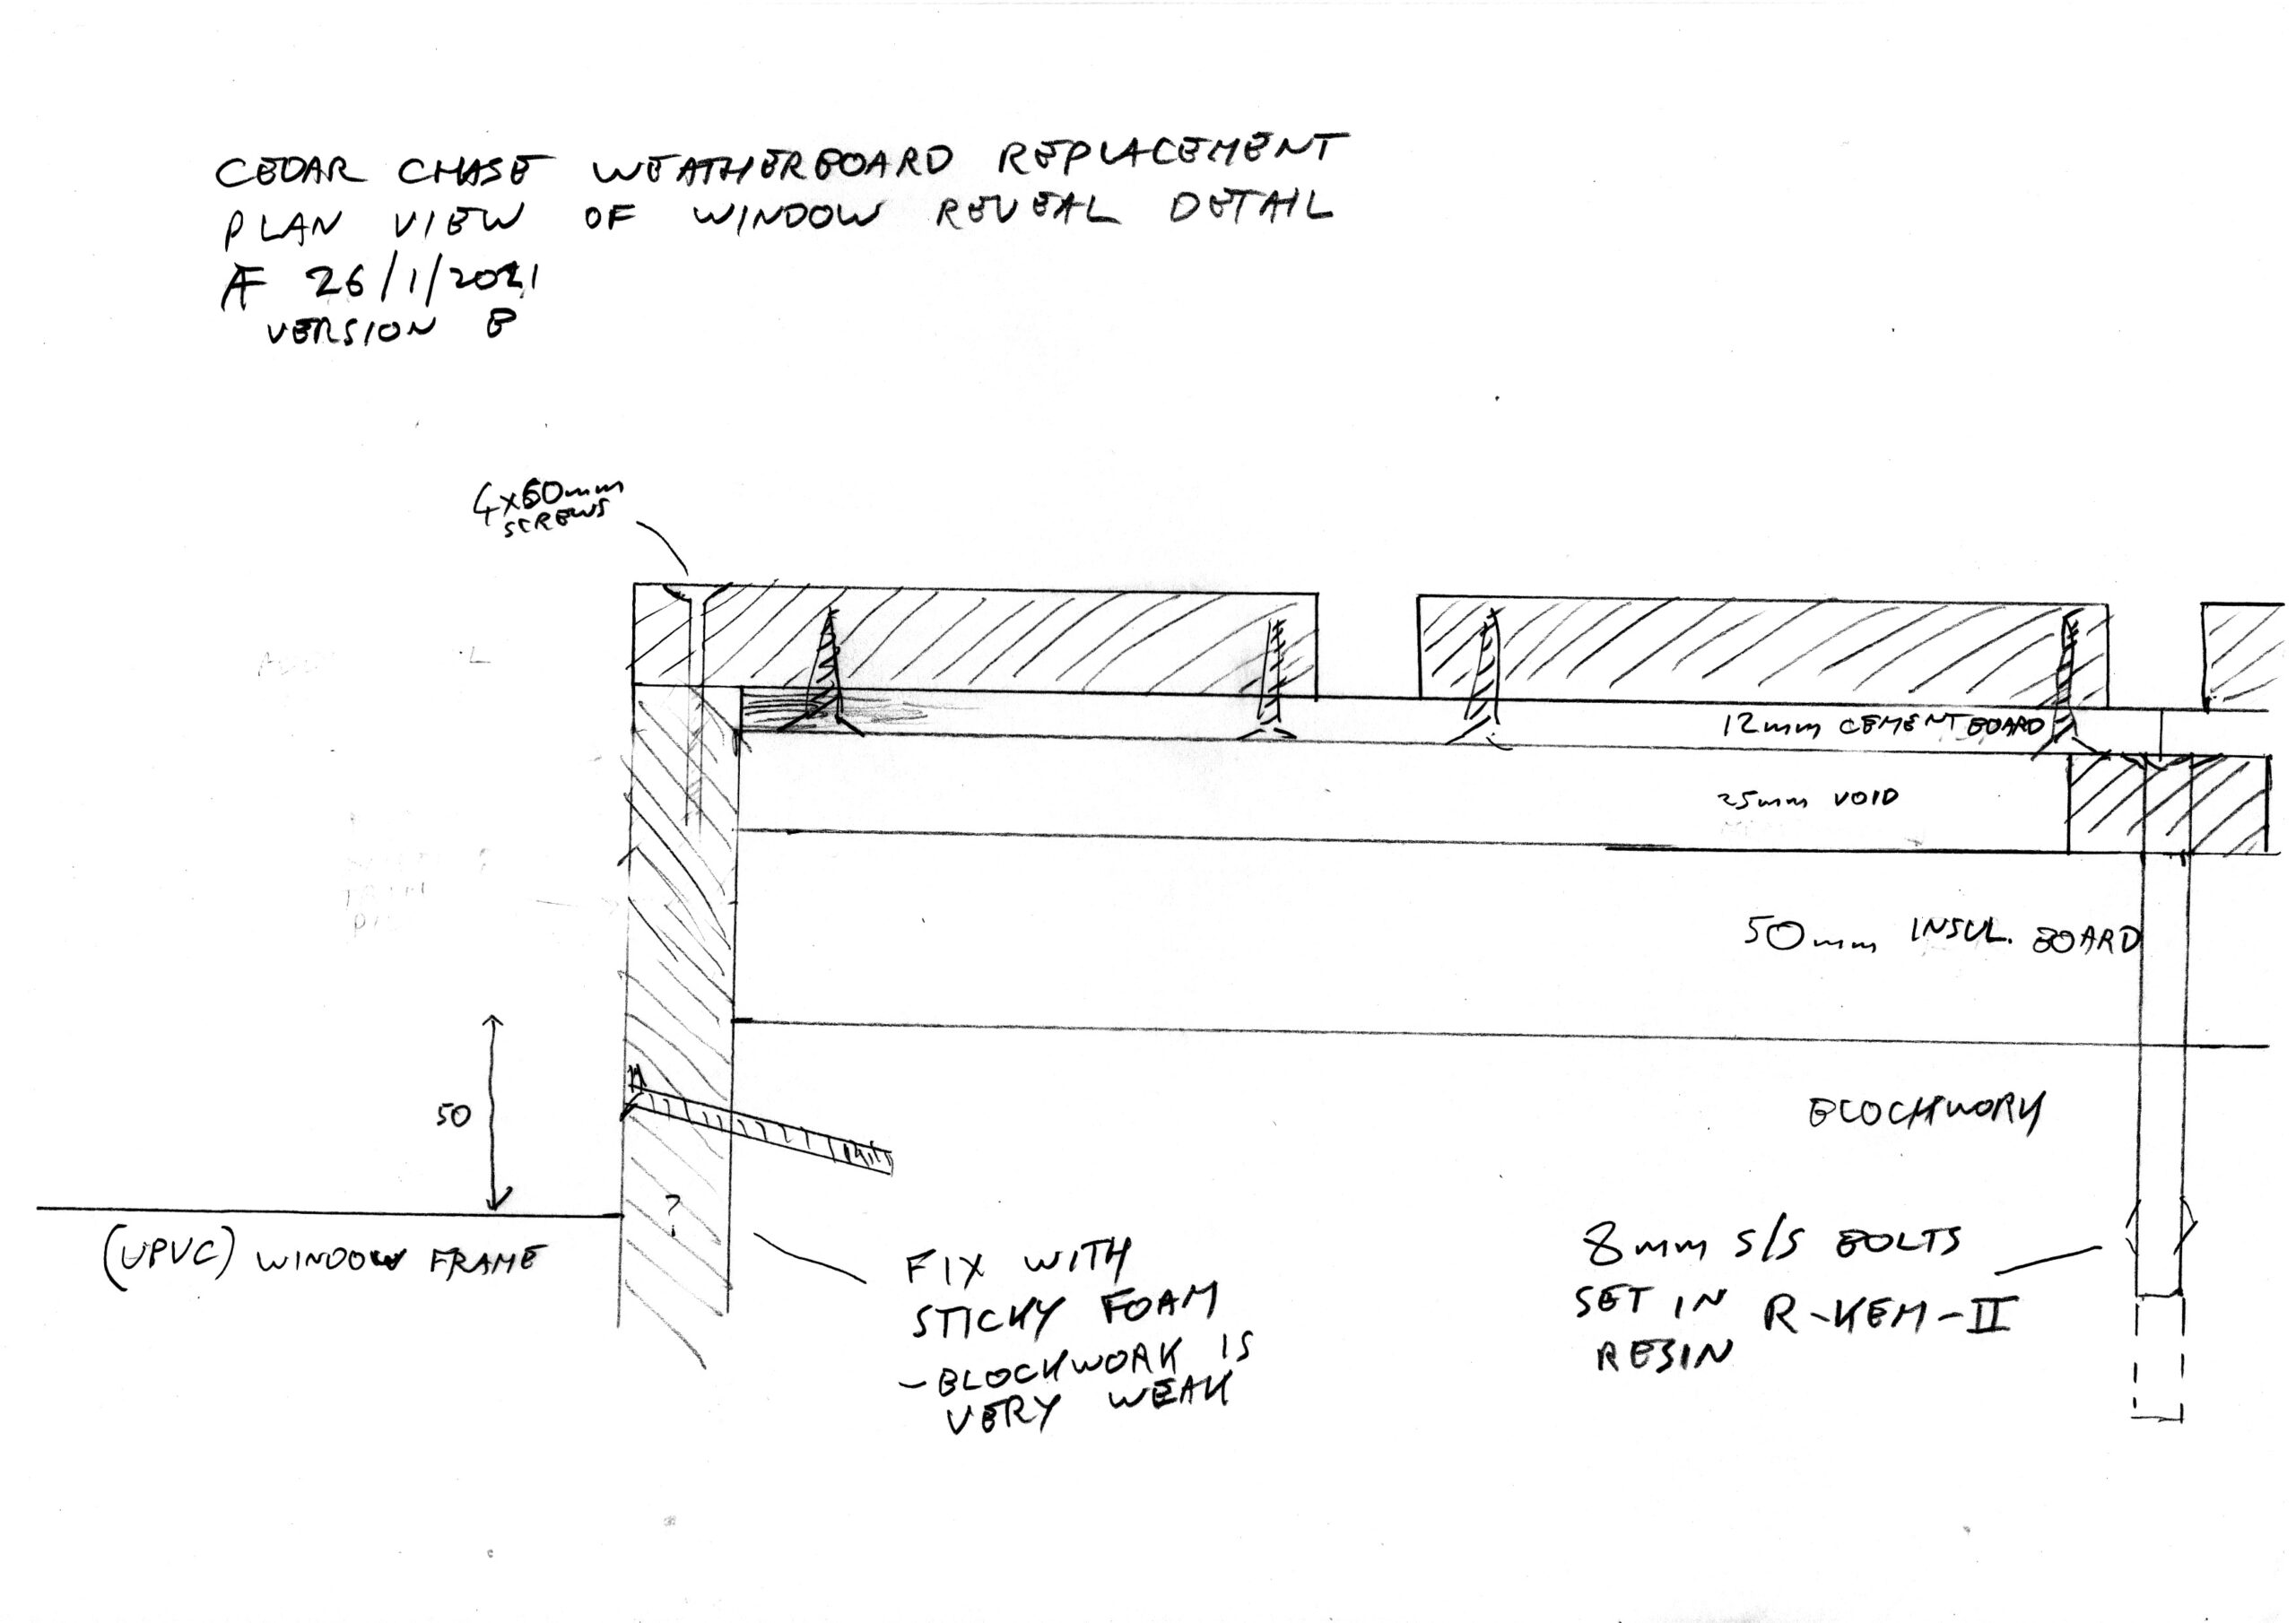 CEDAR CHASE WEATHERBOARD REPLACEMENT
PLAN VIEW OF WINDOW REVEAL DETAIL
AF 26/1/2021
VERSION B
4x60mm
SCREWS
12mm CEMENT BOARD
25mm VOID
50mm INSUL. BOARD
50
BLOCKWORK
?
(UPVC) WINDOW FRAME
FIX WITH
STICKY FOAM
- BLOCKWORK IS
VERY WEAK
8mm S/S BOLTS
SET IN R-KEM-II
RESIN